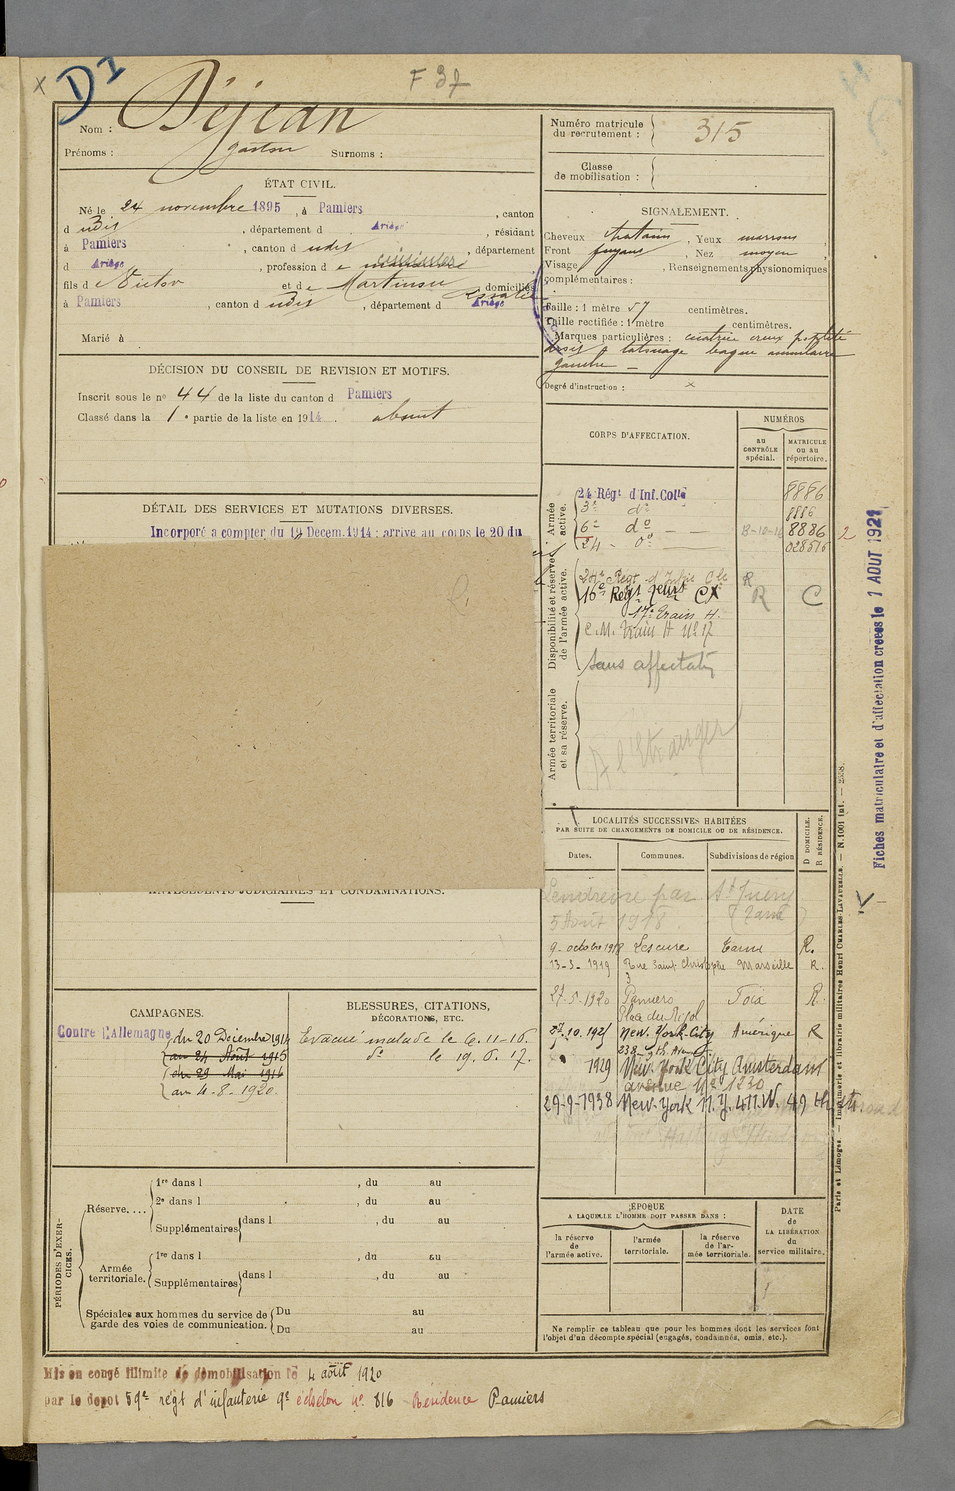 D1
F 37
Nom : Déjean
Prénoms : Gaston Surnoms :
ÉTAT CIVIL.
Né le 24 novembre 1895, à Pamiers, canton
d udit, département d Ariège, résidant
à Pamiers, canton d udit, département
d Ariège, profession d e
fils d e Victor et d e Martinou domiciliés
à Pamiers, canton d udit, département d Ariège
Marié à
DÉCISION DU CONSEIL DE REVISION ET MOTIFS.
Inscrit sous le n° 44 de la liste du canton d Pamiers
Classé dans la 1e partie de la liste en 1914. absent
DÉTAIL DES SERVICES ET MUTATIONS DIVERSES.
Incorporé à compter du 19 Decem. 1914 : arrivé au corps le 20 du
ANTÉCÉDENTS JUDICIAIRES ET CONDAMNATIONS.
CAMPAGNES.
Contre l'Allemagne
du 20 Décembre 1914
au 24 Août 1915
du 29 Mai 1916
au 4-8-1920.
BLESSURES, CITATIONS,
DÉCORATIONS, ETC.
Evacué malade le 6.11-16.
d° le 19.6.17.
PÉRIODES D'EXERCICES.
Réserve....
1re dans l , du au
2e dans l , du au
Supplémentaires dans l , du au
Armée territoriale.
1re dans l , du au
Supplémentaires dans l , du au
Spéciales aux hommes du service de garde des voies de communication.
Du au
Du au
Numéro matricule du recrutement : 315
Classe de mobilisation :
SIGNALEMENT.
Cheveux chatains, Yeux marrons,
Front fuyant, Nez moyen,
Visage , Renseignements physionomiques
complémentaires :
Taille : 1 mètre 57 centimètres.
Taille rectifiée : 1 mètre centimètres.
Marques particulières : cicatrice creux poplité
droit & tatouage bague annulaire
gauche
Degré d'instruction : x
CORPS D'AFFECTATION.
NUMÉROS
au CONTRÔLE spécial.
MATRICULE ou au répertoire.
Armée active.
24 Régt d'Inf. Colle 8886
3e d° 8886
6e d° 8886 2
24 d°
Disponibilité et réserve de l'armée active.
24e Regt d'Infie Cle R
16e Regt R C
17e Train H.
C.M. Train H N° 17
Sans affectation
Armée territoriale et sa réserve.
A l'Etranger
LOCALITÉS SUCCESSIVES HABITÉES
PAR SUITE DE CHANGEMENTS DE DOMICILE OU DE RÉSIDENCE.
Dates. Communes. Subdivisions de région
D DOMICILE. R RÉSIDENCE.
par St Juery
5 Août 1918 (Tarn)
9-octobre 1918 Lescure Tarn R.
13-5-1919 Rue Saint Christophe Marseille R.
3
27-5-1920 Pamiers Foix R.
Place du
27.10.1925 New-York-City Amérique R
238-9th Avenue
1929 New York City Amsterdam
avenue N° 1230
29-9-1938 New-York N.Y. 411 W. 49 th street
ÉPOQUE
A LAQUELLE L'HOMME DOIT PASSER DANS :
la réserve de l'armée active.
l'armée territoriale.
la réserve de l'armée territoriale.
DATE de LA LIBÉRATION du service militaire.
Ne remplir ce tableau que pour les hommes dont les services font
l'objet d'un décompte spécial (engagés, condamnés, omis, etc.).
Mis en congé illimité de démobilisation le 4 août 1920
par le depot 59e régt d'infanterie 9e échelon n° 816 Résidence Pamiers
Fiches matriculaire et d'affectation créées le 1 AOUT 1921
Paris et Limoges. — Imprimerie et librairie militaires Henri CHARLES-LAVAUZELLE. — N. 1001 int. — 2538.